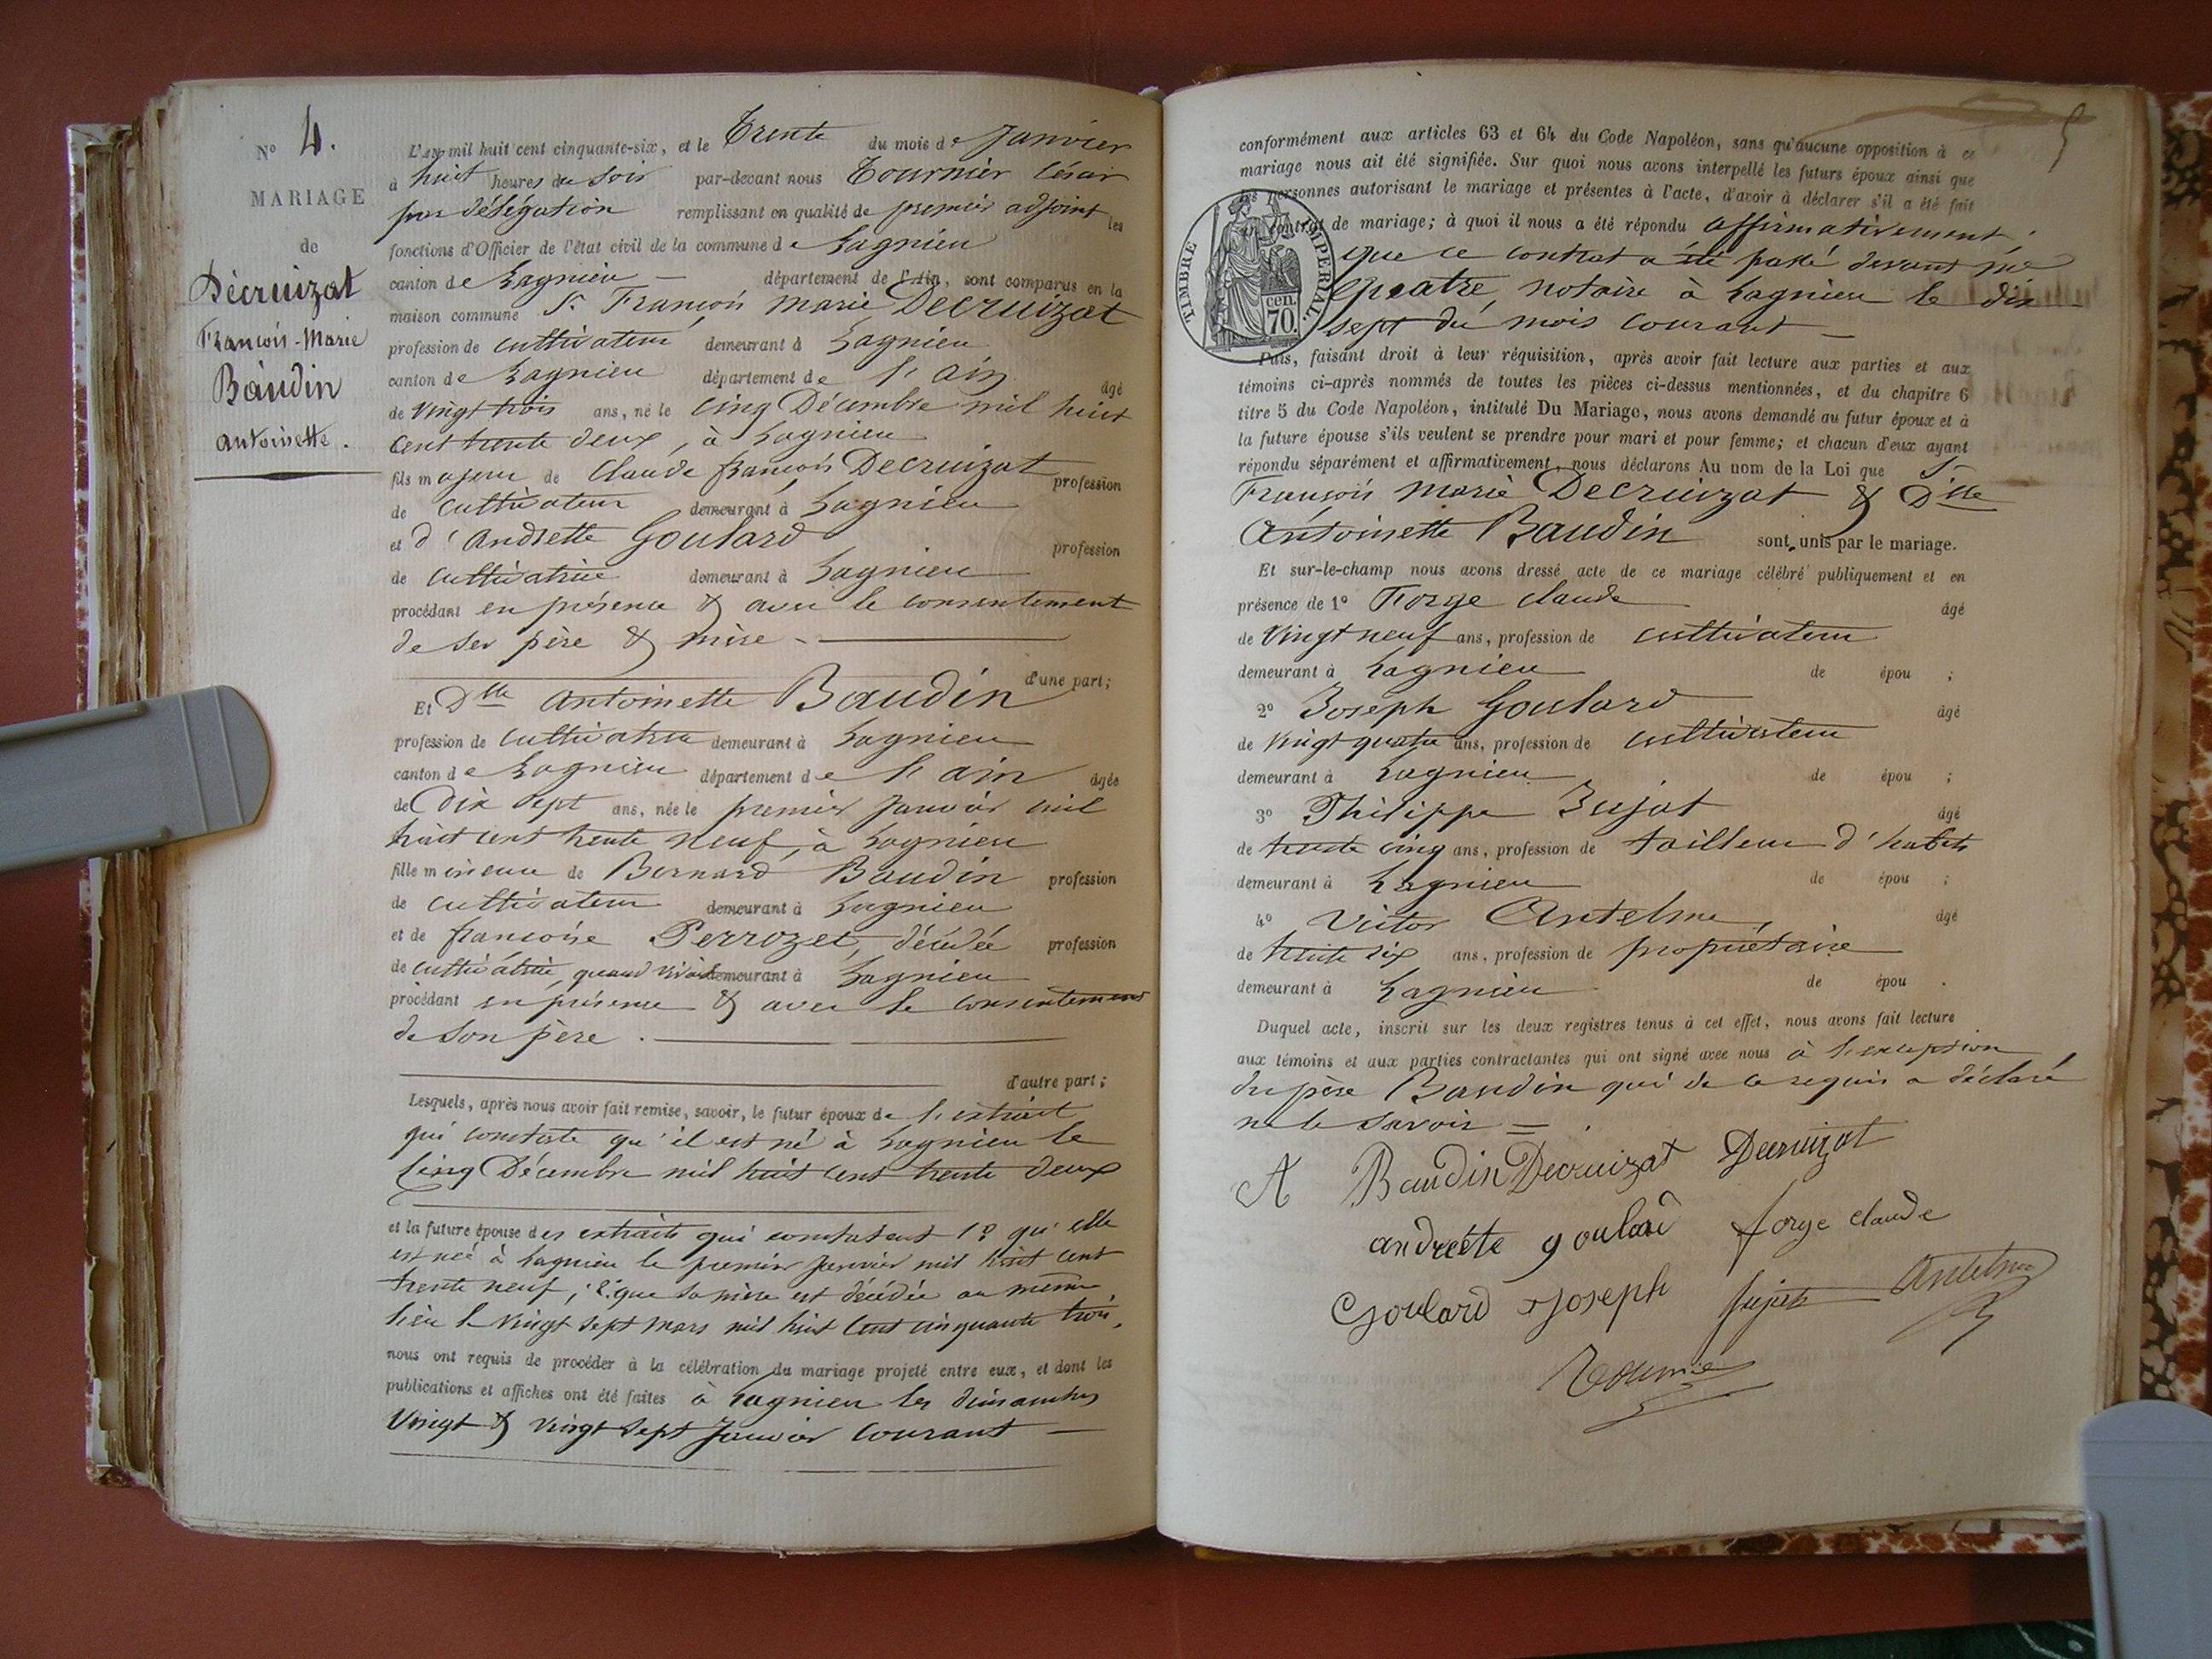 N° 4.
MARIAGE
de
Décruizat
François-Marie
Baudin
antoinette.
L'an mil huit cent cinquante-six, et le Trente du mois de Janvier
à huit heures du soir par-devant nous Tournier César
par délégation remplissant en qualité de premier adjoint les
fonctions d'Officier de l'état civil de la commune de Lagnieu
canton de Lagnieu — département de l'Ain, sont comparus en la
maison commune Sr François marie Decruizat
profession de cultivateur demeurant à Lagnieu
canton de Lagnieu département de l'ain âgé
de vingt trois ans, né le cinq Décembre mil huit
cent trente deux, à Lagnieu
fils majeur de Claude françois Decruizat profession
de cultivateur demeurant à Lagnieu
et d'Andrette Goulard profession
de cultivatrice demeurant à Lagnieu
procédant en présence & avec le consentement
de ses père & mère —
d'une part;
Et Dlle antoinette Baudin
profession de cultivatrice demeurant à Lagnieu
canton de Lagnieu département de l'ain âgée
de Dix sept ans, née le premier janvier mil
huit cent trente neuf, à Lagnieu
fille mineure de Bernard Baudin profession
de cultivateur demeurant à Lagnieu
et de françoise Perrozet, décédée profession
de cultivatrice, quand vivait demeurant à Lagnieu
procédant en présence & avec le consentement
de son père . —
d'autre part;
Lesquels, après nous avoir fait remise, savoir, le futur époux de l'extrait
qui constate qu'il est né à Lagnieu le
Cinq Décembre mil huit cent trente deux
et la future épouse des extraits qui constatent 1° qu'elle
est née à Lagnieu le premier janvier mil huit cent
trente neuf; 2° que sa mère est décédée au même
lieu le vingt sept mars mil huit cent cinquante trois,
nous ont requis de procéder à la célébration du mariage projeté entre eux, et dont les
publications et affiches ont été faites à Lagnieu les dimanches
vingt & vingt sept Janvier courant —
5
conformément aux articles 63 et 64 du Code Napoléon, sans qu'aucune opposition à ce
mariage nous ait été signifiée. Sur quoi nous avons interpellé les futurs époux ainsi que
les personnes autorisant le mariage et présentes à l'acte, d'avoir à déclarer s'il a été fait
contrat de mariage; à quoi il nous a été répondu affirmativement,
que ce contrat a été passé devant me
notaire à Lagnieu le dix
sept du mois courant —
TIMBRE IMPERIAL
cen.
70.
Puis, faisant droit à leur réquisition, après avoir fait lecture aux parties et aux
témoins ci-après nommés de toutes les pièces ci-dessus mentionnées, et du chapitre 6
titre 5 du Code Napoléon, intitulé Du Mariage, nous avons demandé au futur époux et à
la future épouse s'ils veulent se prendre pour mari et pour femme; et chacun d'eux ayant
répondu séparément et affirmativement, nous déclarons Au nom de la Loi que Sr
François marie Decruizat & Dlle
Antoinette Baudin sont unis par le mariage.
Et sur-le-champ nous avons dressé acte de ce mariage célébré publiquement et en
présence de 1° Forge claude âgé
de vingt neuf ans, profession de cultivateur
demeurant à Lagnieu de épou ;
2° Joseph Goulard âgé
de vingt quatre ans, profession de cultivateur
demeurant à Lagnieu de épou ;
3° Philippe Jujat âgé
de trente cinq ans, profession de tailleur d'habits
demeurant à Lagnieu de épou ;
4° Victor Antelme, âgé
de trente six ans, profession de propriétaire
demeurant à Lagnieu de épou .
Duquel acte, inscrit sur les deux registres tenus à cet effet, nous avons fait lecture
aux témoins et aux parties contractantes qui ont signé avec nous à l'exception
du père Baudin qui de ce requis a déclaré
ne le savoir = .
A Baudin Decruizat Decruizat
andreéte goulard forge claude
Goulard Joseph Jujat Antelme
Tournier